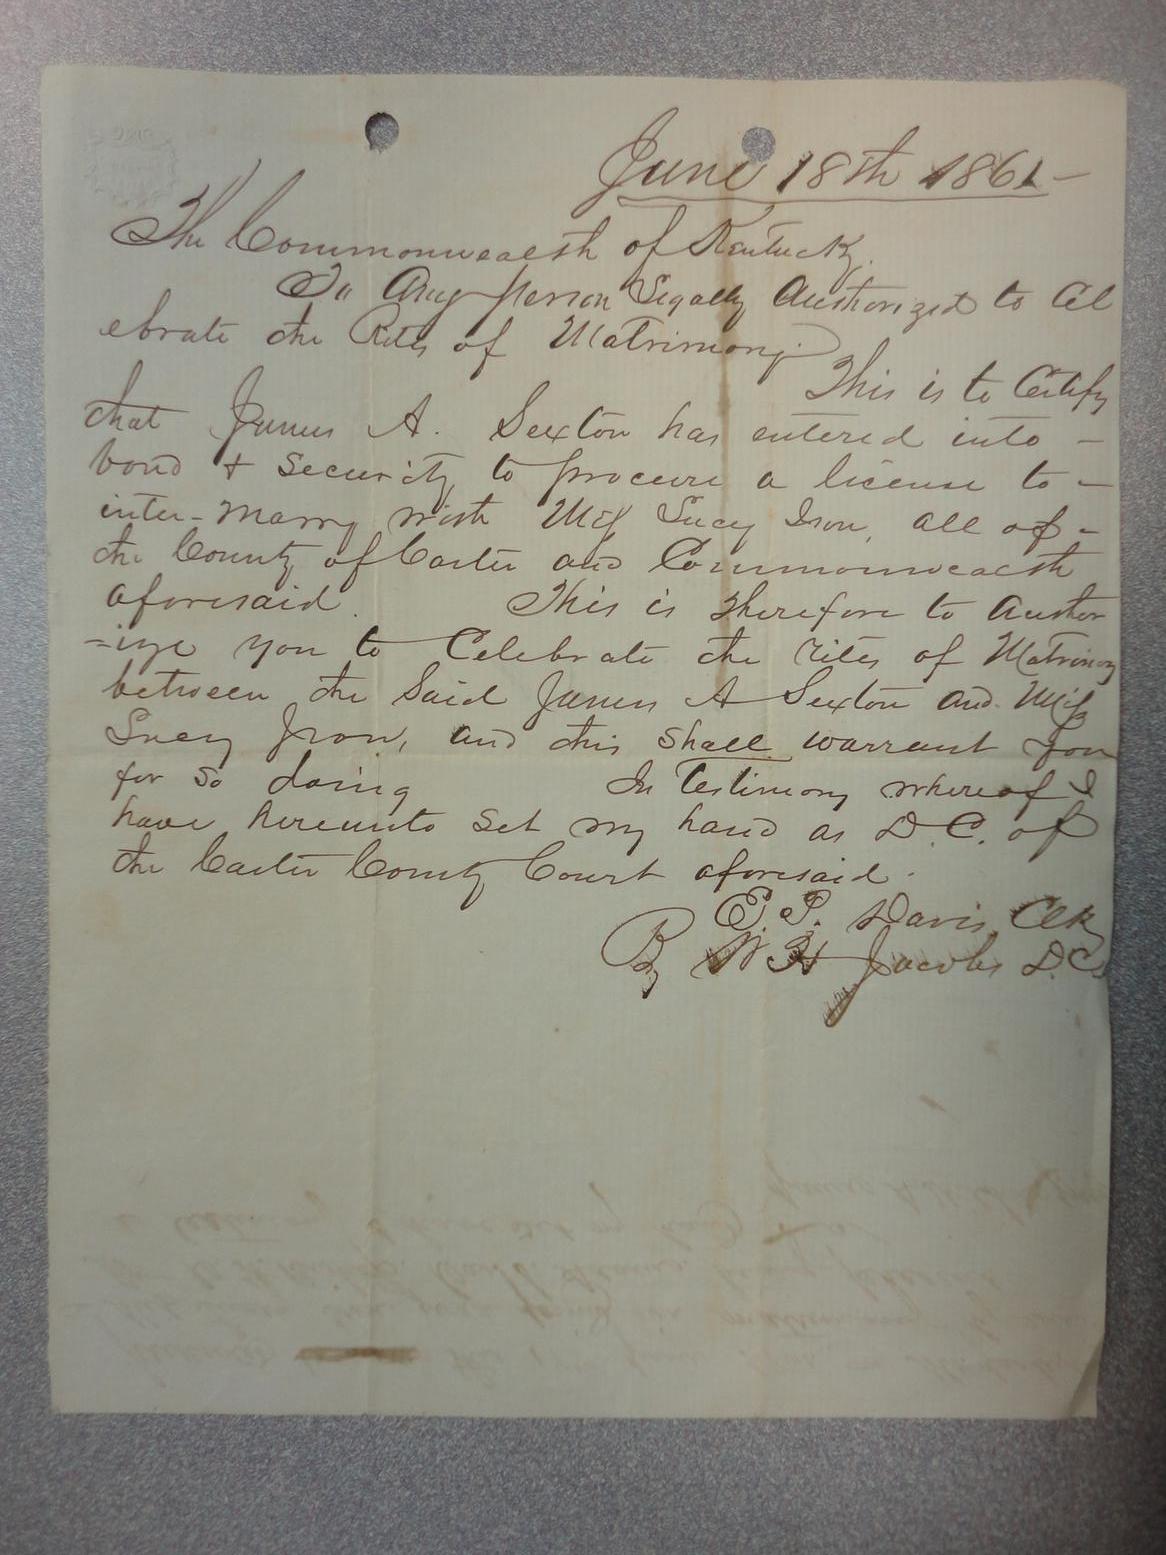 June 18th 1861 -
The Commonwealth of Kentucky.
To Any person Legally Authorized to Cel
ebrate the Rites of Matrimony.
This is to Certify
that James A. Sexton has entered into -
bond + Security to procure a license to -
inter-marry with Miss Lucy Iron, all of -
the County of Carter and Commonwealth
aforesaid. This is therefore to author
=ize you to Celebrate the rites of Matrimony
between the said James A Sexton and Miss
Lucy Iron, and this shall warrant you
for so doing In Testimony whereof I
have hereunto set my hand as D.C. of
the Carter County Court aforesaid.
G. P. Davis, Clk
By W H Jacobs D.C.